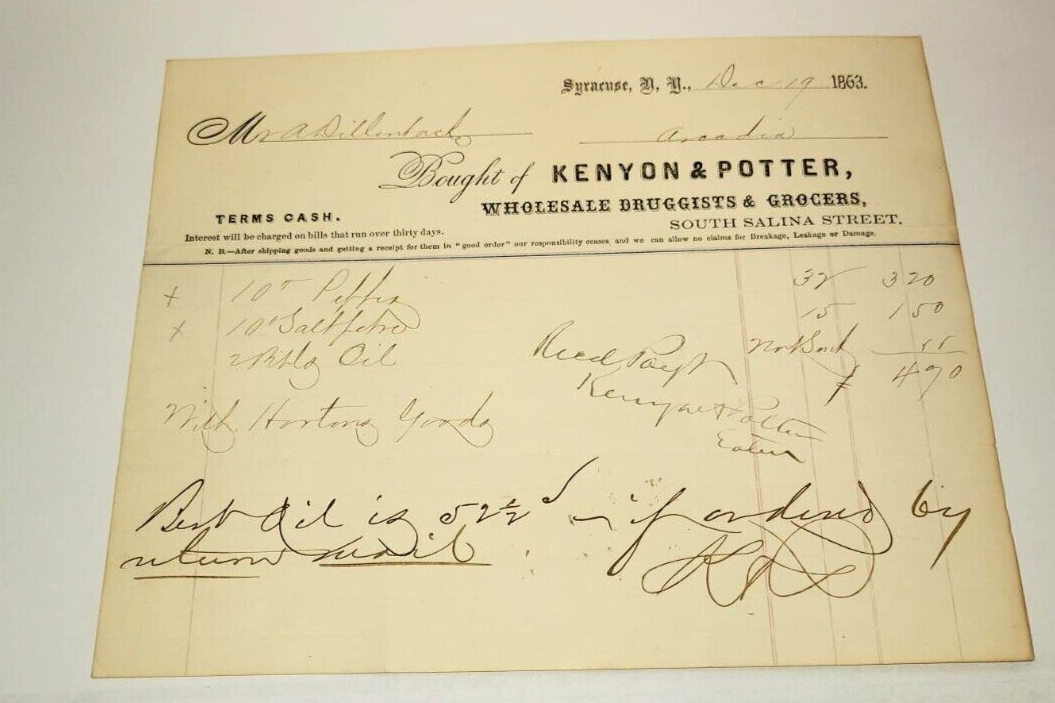 Syracuse, N. Y., Dec 19 1863.
Mr A Dillenback Arcadia
Bought of KENYON & POTTER,
WHOLESALE DRUGGISTS & GROCERS,
TERMS CASH. SOUTH SALINA STREET.
Interest will be charged on bills that run over thirty days.
N. B.—After shipping goods and getting a receipt for them in "good order" our responsibility ceases, and we can allow no claims for Breakage, Leakage or Damage.
x 10 Pepper 32 3 20
x 10 Saltpetre 15 1 50
2 Bbls Oil
4 90
Recd Payt
Kenyon & Potter
With Hortons Goods
Best Oil is 52½ if ordered by
return mail